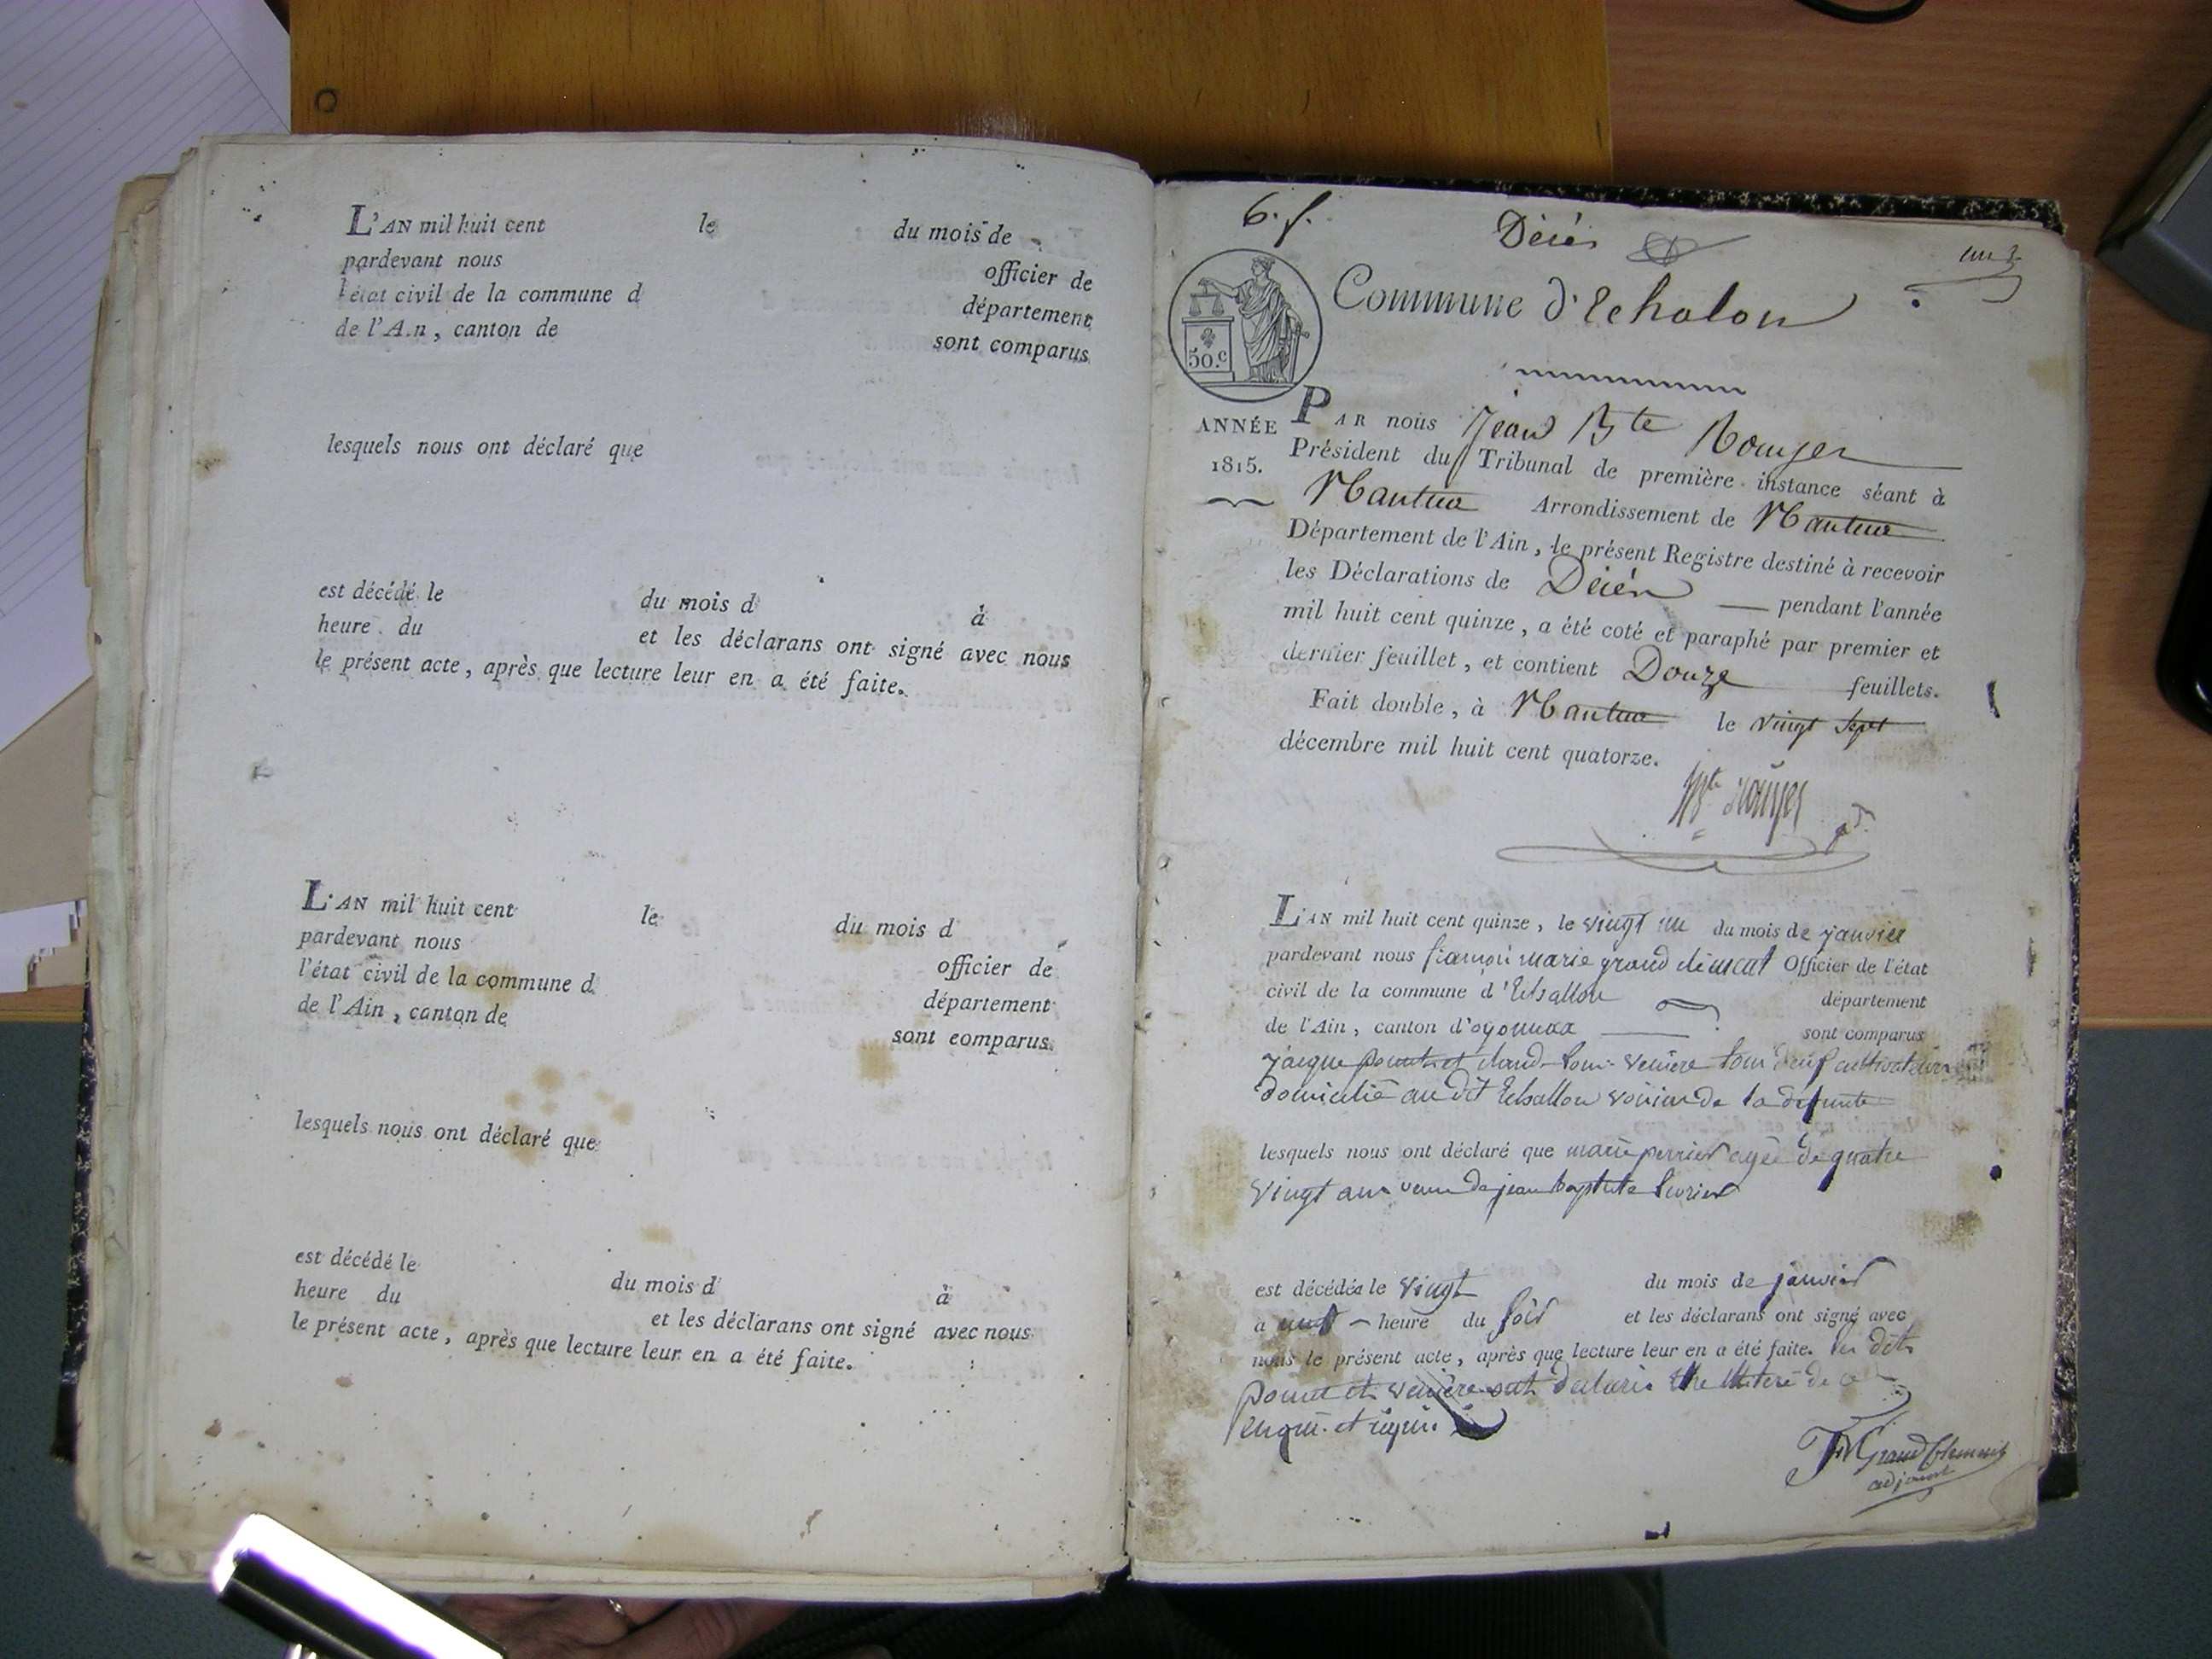 L'AN mil huit cent le du mois de
pardevant nous officier de
l'état civil de la commune d département
de l'Ain, canton de sont comparus
lesquels nous ont déclaré que
est décédé le du mois d à
heure du et les déclarans ont signé avec nous
le présent acte, après que lecture leur en a été faite.
L'AN mil huit cent le du mois d
pardevant nous officier de
l'état civil de la commune d département
de l'Ain, canton de sont comparus
lesquels nous ont déclaré que
est décédé le du mois d à
heure du et les déclarans ont signé avec nous
le présent acte, après que lecture leur en a été faite.
6. f. Décés
Commune d'Echalon
50.c
ANNÉE
1815.
PAR nous Jean Bte Rouyer
Président du Tribunal de première instance séant à
Nantua Arrondissement de Nantua
Département de l'Ain, le présent Registre destiné à recevoir
les Déclarations de Décés pendant l'année
mil huit cent quinze, a été coté et paraphé par premier et
dernier feuillet, et contient Douze feuillets.
Fait double, à Nantua le vingt sept
décembre mil huit cent quatorze.
Bte Rouyer
L'AN mil huit cent quinze, le vingt un du mois de janvier
pardevant nous françoi marie grand clement Officier de l'état
civil de la commune d'Echallon département
de l'Ain, canton d'oyonnax sont comparus
jacque et claud cultivateurs
domicilié au dit Echallon voisin de la defunte
lesquels nous ont déclaré que marie perrier agée de quatre
vingt ans veuve de jean baptiste
est décédéa le vingt du mois de janvier
a heure du soir et les déclarans ont signé avec
nous le présent acte, après que lecture leur en a été faite. les dits
et ont déclaré de ce
enqui. et requi
FM Grand Clement
adjoint